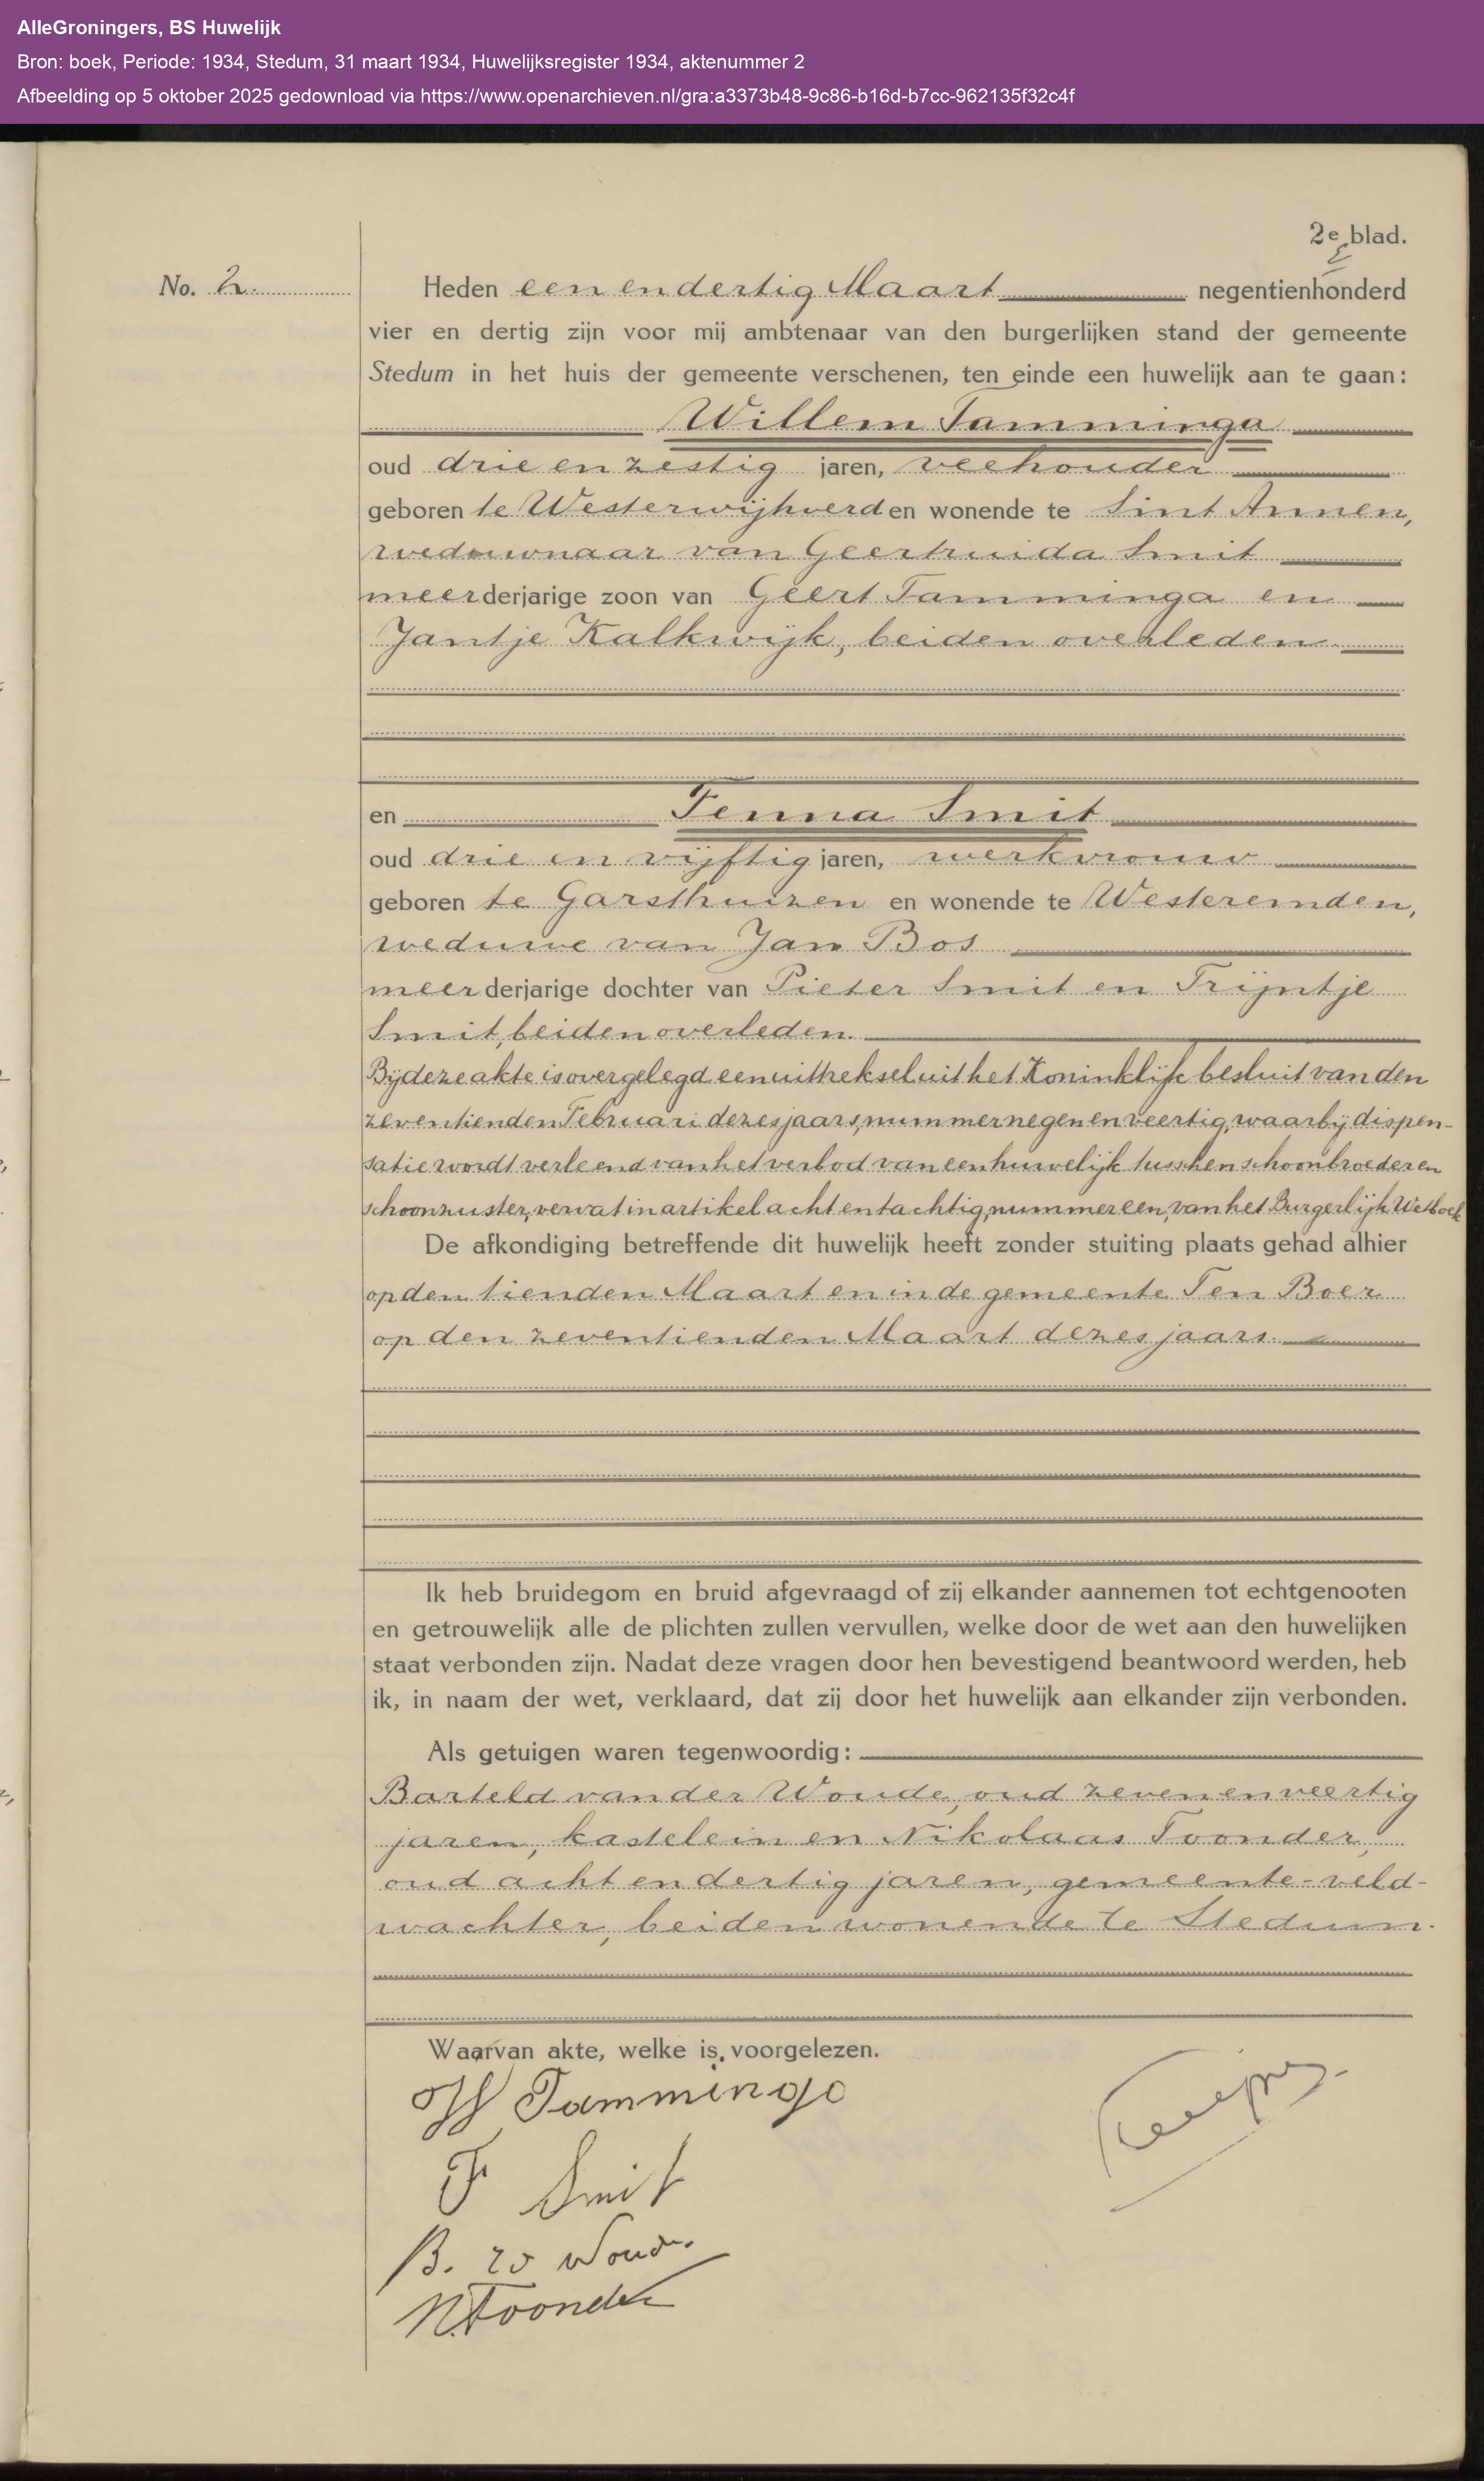 AlleGroningers, BS Huwelijk
Bron: boek, Periode: 1934, Stedum, 31 maart 1934, Huwelijksregister 1934, aktenummer 2
Afbeelding op 5 oktober 2025 gedownload via https://www.openarchieven.nl/gra:a3373b48-9c86-b16d-b7cc-962135f32c4f
2e blad.
No. 2.
Heden een en dertig Maart negentienhonderd
vier en dertig zijn voor mij ambtenaar van den burgerlijken stand der gemeente
Stedum in het huis der gemeente verschenen, ten einde een huwelijk aan te gaan:
Willem Tamminga
oud drie en zestig jaren, veehouder
geboren te Westerwijtwerd en wonende te Sint Annen,
weduwnaar van Geertruida Smit
meerderjarige zoon van Geert Tamminga en
Jantje Kalkwijk, beiden overleden.
en Fenna Smit
oud drie en vijftig jaren, werkvrouw
geboren te Garsthuizen en wonende te Westeremden,
weduwe van Jan Bos
meerderjarige dochter van Pieter Smit en Trijntje
Smit, beiden overleden.
Bij deze akte is overgelegd een uittreksel uit het Koninklijk besluit van den
zeventienden Februari dezes jaars, nummer negen en veertig, waarbij dispen-
satie wordt verleend van het verbod van een huwelijk tusschen schoonbroeder en
schoonzuster, vervat in artikel acht en tachtig, nummer een, van het Burgerlijk Wetboek
De afkondiging betreffende dit huwelijk heeft zonder stuiting plaats gehad alhier
op den tienden Maart en in de gemeente Ten Boer
op den zeventienden Maart dezes jaars.
Ik heb bruidegom en bruid afgevraagd of zij elkander aannemen tot echtgenooten
en getrouwelijk alle de plichten zullen vervullen, welke door de wet aan den huwelijken
staat verbonden zijn. Nadat deze vragen door hen bevestigend beantwoord werden, heb
ik, in naam der wet, verklaard, dat zij door het huwelijk aan elkander zijn verbonden.
Als getuigen waren tegenwoordig:
Barteld van der Woude, oud zeven en veertig
jaren, kastelein en Nikolaas Toonder,
oud acht en dertig jaren, gemeente-veld-
wachter, beiden wonende te Stedum.
Waarvan akte, welke is voorgelezen.
W Tamminga
F Smit
B. vd Woude
N. Toonder